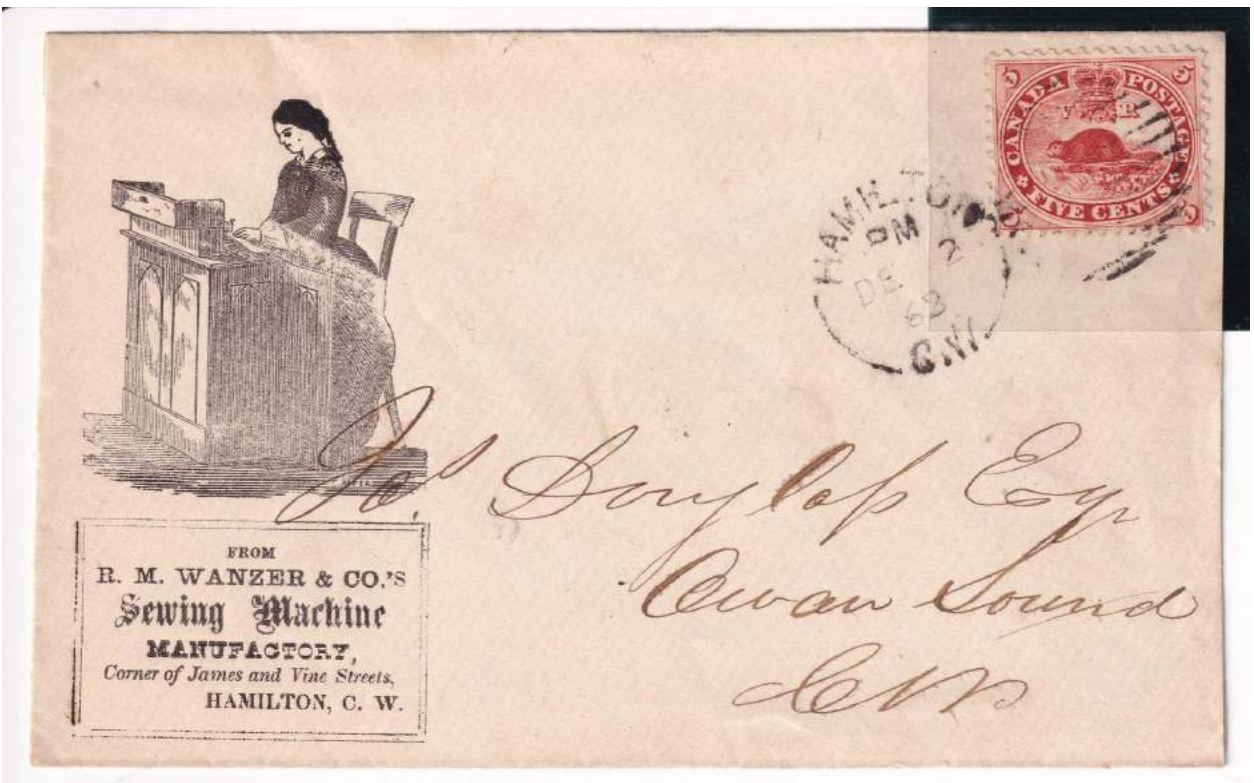 5 5
CANADA POSTAGE
V R
FIVE CENTS
5 5
HAMILTON
PM
DE 2
63
C.W.
Jas. Douglass Esqr
Owen Sound
C W
FROM
R. M. WANZER & CO.'S
Sewing Machine
MANUFACTORY,
Corner of James and Vine Streets,
HAMILTON, C. W.